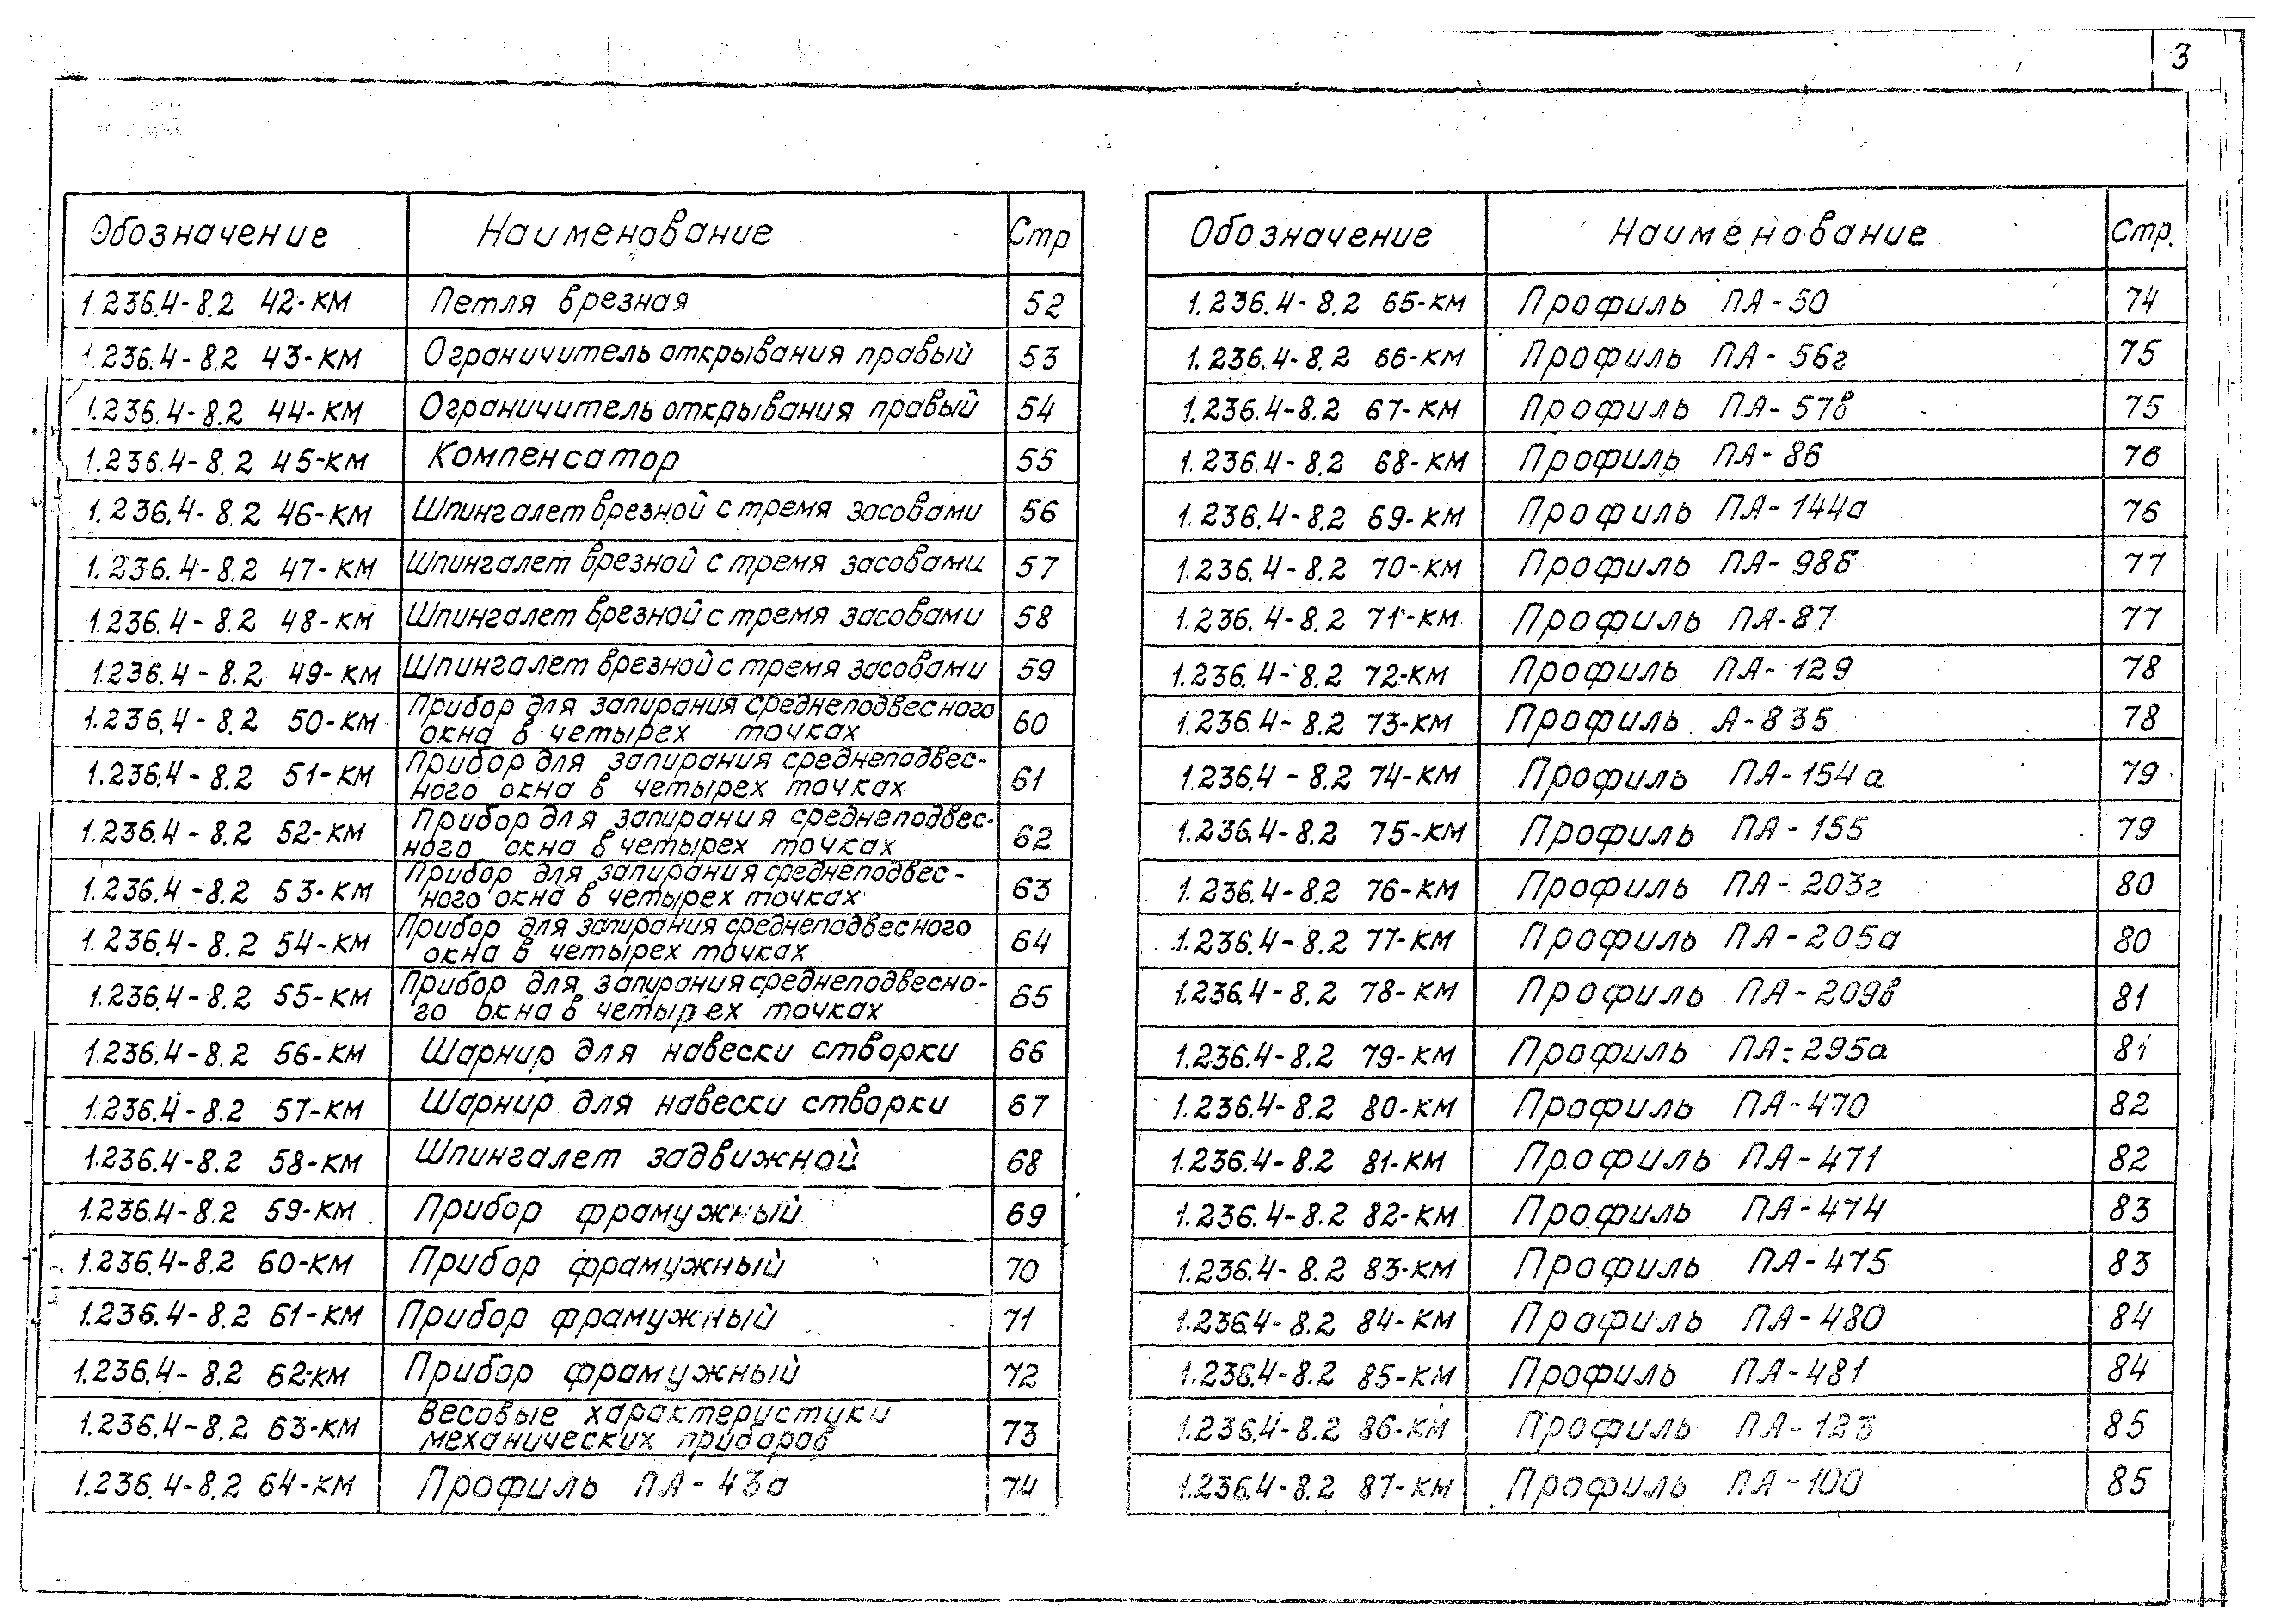 3
Обозначение Наименование Стр
1.236.4-8.2 42-КМ Петля врезная 52
1.236.4-8.2 43-КМ Ограничитель открывания правый 53
1.236.4-8.2 44-КМ Ограничитель открывания правый 54
1.236.4-8.2 45-КМ Компенсатор 55
1.236.4-8.2 46-КМ Шпингалет врезной с тремя засовами 56
1.236.4-8.2 47-КМ Шпингалет врезной с тремя засовами 57
1.236.4-8.2 48-КМ Шпингалет врезной с тремя засовами 58
1.236.4-8.2 49-КМ Шпингалет врезной с тремя засовами 59
1.236.4-8.2 50-КМ Прибор для запирания среднеподвесного
окна в четырех точках 60
1.236.4-8.2 51-КМ Прибор для запирания среднеподвес-
ного окна в четырех точках 61
1.236.4-8.2 52-КМ Прибор для запирания среднеподвес-
ного окна в четырех точках 62
1.236.4-8.2 53-КМ Прибор для запирания среднеподвес-
ного окна в четырех точках 63
1.236.4-8.2 54-КМ Прибор для запирания среднеподвесного
окна в четырех точках 64
1.236.4-8.2 55-КМ Прибор для запирания среднеподвесно-
го окна в четырех точках 65
1.236.4-8.2 56-КМ Шарнир для навески створки 66
1.236.4-8.2 57-КМ Шарнир для навески створки 67
1.236.4-8.2 58-КМ Шпингалет задвижной 68
1.236.4-8.2 59-КМ Прибор фрамужный 69
1.236.4-8.2 60-КМ Прибор фрамужный 70
1.236.4-8.2 61-КМ Прибор фрамужный 71
1.236.4-8.2 62-КМ Прибор фрамужный 72
1.236.4-8.2 63-КМ Весовые характеристики
механических приборов 73
1.236.4-8.2 64-КМ Профиль ПА-43а 74
Обозначение Наименование Стр.
1.236.4-8.2 65-КМ Профиль ПА-50 74
1.236.4-8.2 66-КМ Профиль ПА-56г 75
1.236.4-8.2 67-КМ Профиль ПА-57в 75
1.236.4-8.2 68-КМ Профиль ПА-86 76
1.236.4-8.2 69-КМ Профиль ПА-144а 76
1.236.4-8.2 70-КМ Профиль ПА-98б 77
1.236.4-8.2 71-КМ Профиль ПА-87 77
1.236.4-8.2 72-КМ Профиль ПА-129 78
1.236.4-8.2 73-КМ Профиль А-835 78
1.236.4-8.2 74-КМ Профиль ПА-154а 79
1.236.4-8.2 75-КМ Профиль ПА-155 79
1.236.4-8.2 76-КМ Профиль ПА-203г 80
1.236.4-8.2 77-КМ Профиль ПА-205а 80
1.236.4-8.2 78-КМ Профиль ПА-209в 81
1.236.4-8.2 79-КМ Профиль ПА-295а 81
1.236.4-8.2 80-КМ Профиль ПА-470 82
1.236.4-8.2 81-КМ Профиль ПА-471 82
1.236.4-8.2 82-КМ Профиль ПА-474 83
1.236.4-8.2 83-КМ Профиль ПА-475 83
1.236.4-8.2 84-КМ Профиль ПА-480 84
1.236.4-8.2 85-КМ Профиль ПА-481 84
1.236.4-8.2 86-КМ Профиль ПА-123 85
1.236.4-8.2 87-КМ Профиль ПА-100 85